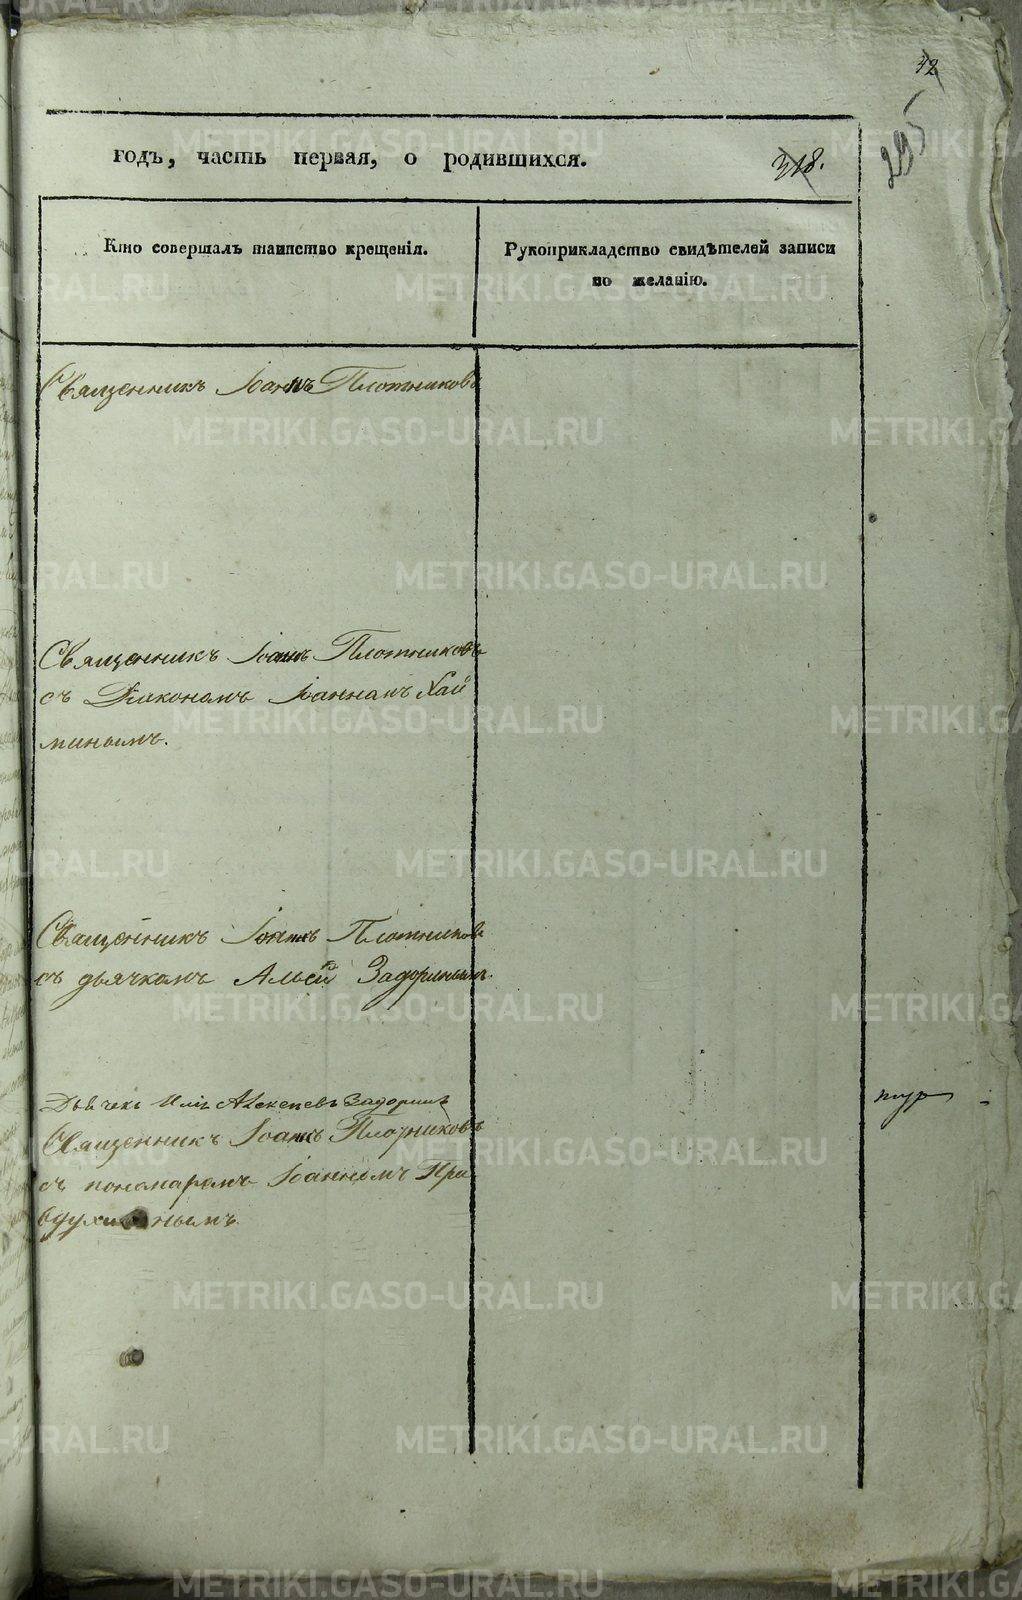 42
295
годъ, часть первая, о родившихся.
318.
Кто совершалъ таинство крещенія.
Рукоприкладство свидѣтелей записи
по желанію.
Священникъ Іоаннъ Плотниковъ
Священникъ Іоаннъ Плотниковъ
съ Діакономъ Іоанномъ Хай
минымъ.
Священникъ Іоаннъ Плотниковъ
съ дьячкомъ Задоринымъ.
Дьячекъ Задоринъ
Священникъ Іоаннъ Плотниковъ
съ пономаремъ Іоанномъ
METRIKI.GASO-URAL.RU